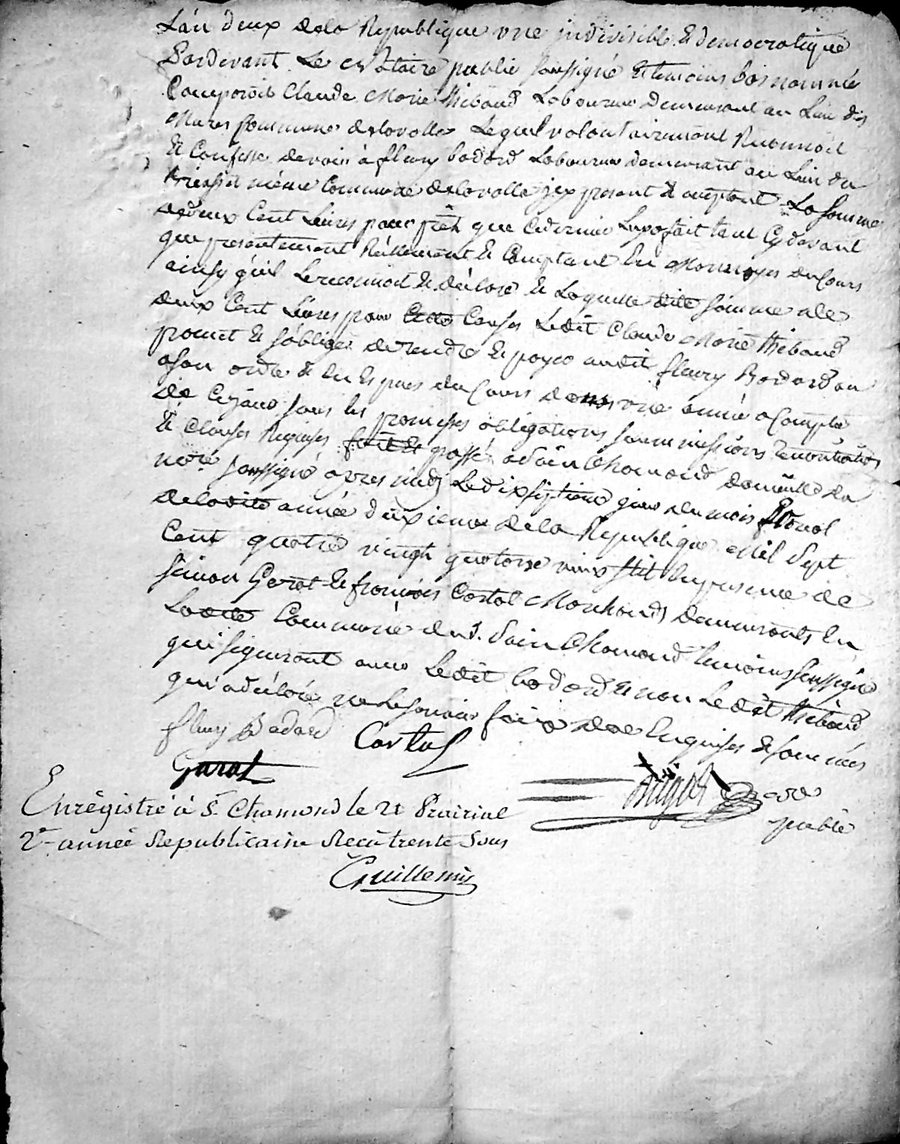 L'an deux de la Republique une indivisible & democratique
Pardevant Le Notaire public soussigné & temoins bas nommés
Comparoit Claude Marie thibaud Laboureur demeurant au Lieu des
Mures Commune delavalla Lequel volontairement Reconnoit
& Confesse devoir à fleury badard Laboureur demeurant au Lieu du
même Commune delavalla present & acceptant La somme
de deux Cent Livres pour prêt que ce dernier Luy a fait tant Cydevant
que presentement Réellement & Comptant En Monnoyes du Cours
ainsy qu'il Le reconnoit & declare & Laquelle dite somme de
deux Cent Livres pour Causes Ledit Claude Marie thibaud
promet & s'oblige de rendre & payer audit fleury Badard ou
a son ordre & En Espèces du Cours dans une année a Compter
de Cejour sous les promesses obligations soummissions Renonciations
& Clauses Requises fait & passé a Sain Chamond domicille du
no.re soussigné apres midy Le dixseptieme jour du mois floreal
deladite année deuxieme de la Republique Mil Sept
Cent quatre vingt quatorze vieux stil En presence de
Simon Garat & francois Costal Marchands demeurants En
Ladite Commune de St. Sain Chamond temoins soussignés
qui signeront avec Ledit badard & non Ledit thibaud
qui a declaré ne Le savoir faire de Enquises & sommés
fleury Badard Costal
Garat
public
Enregistré à St. Chamond le 21 Prairial
2e année Republicaine Recu trente Sous
Guillemin